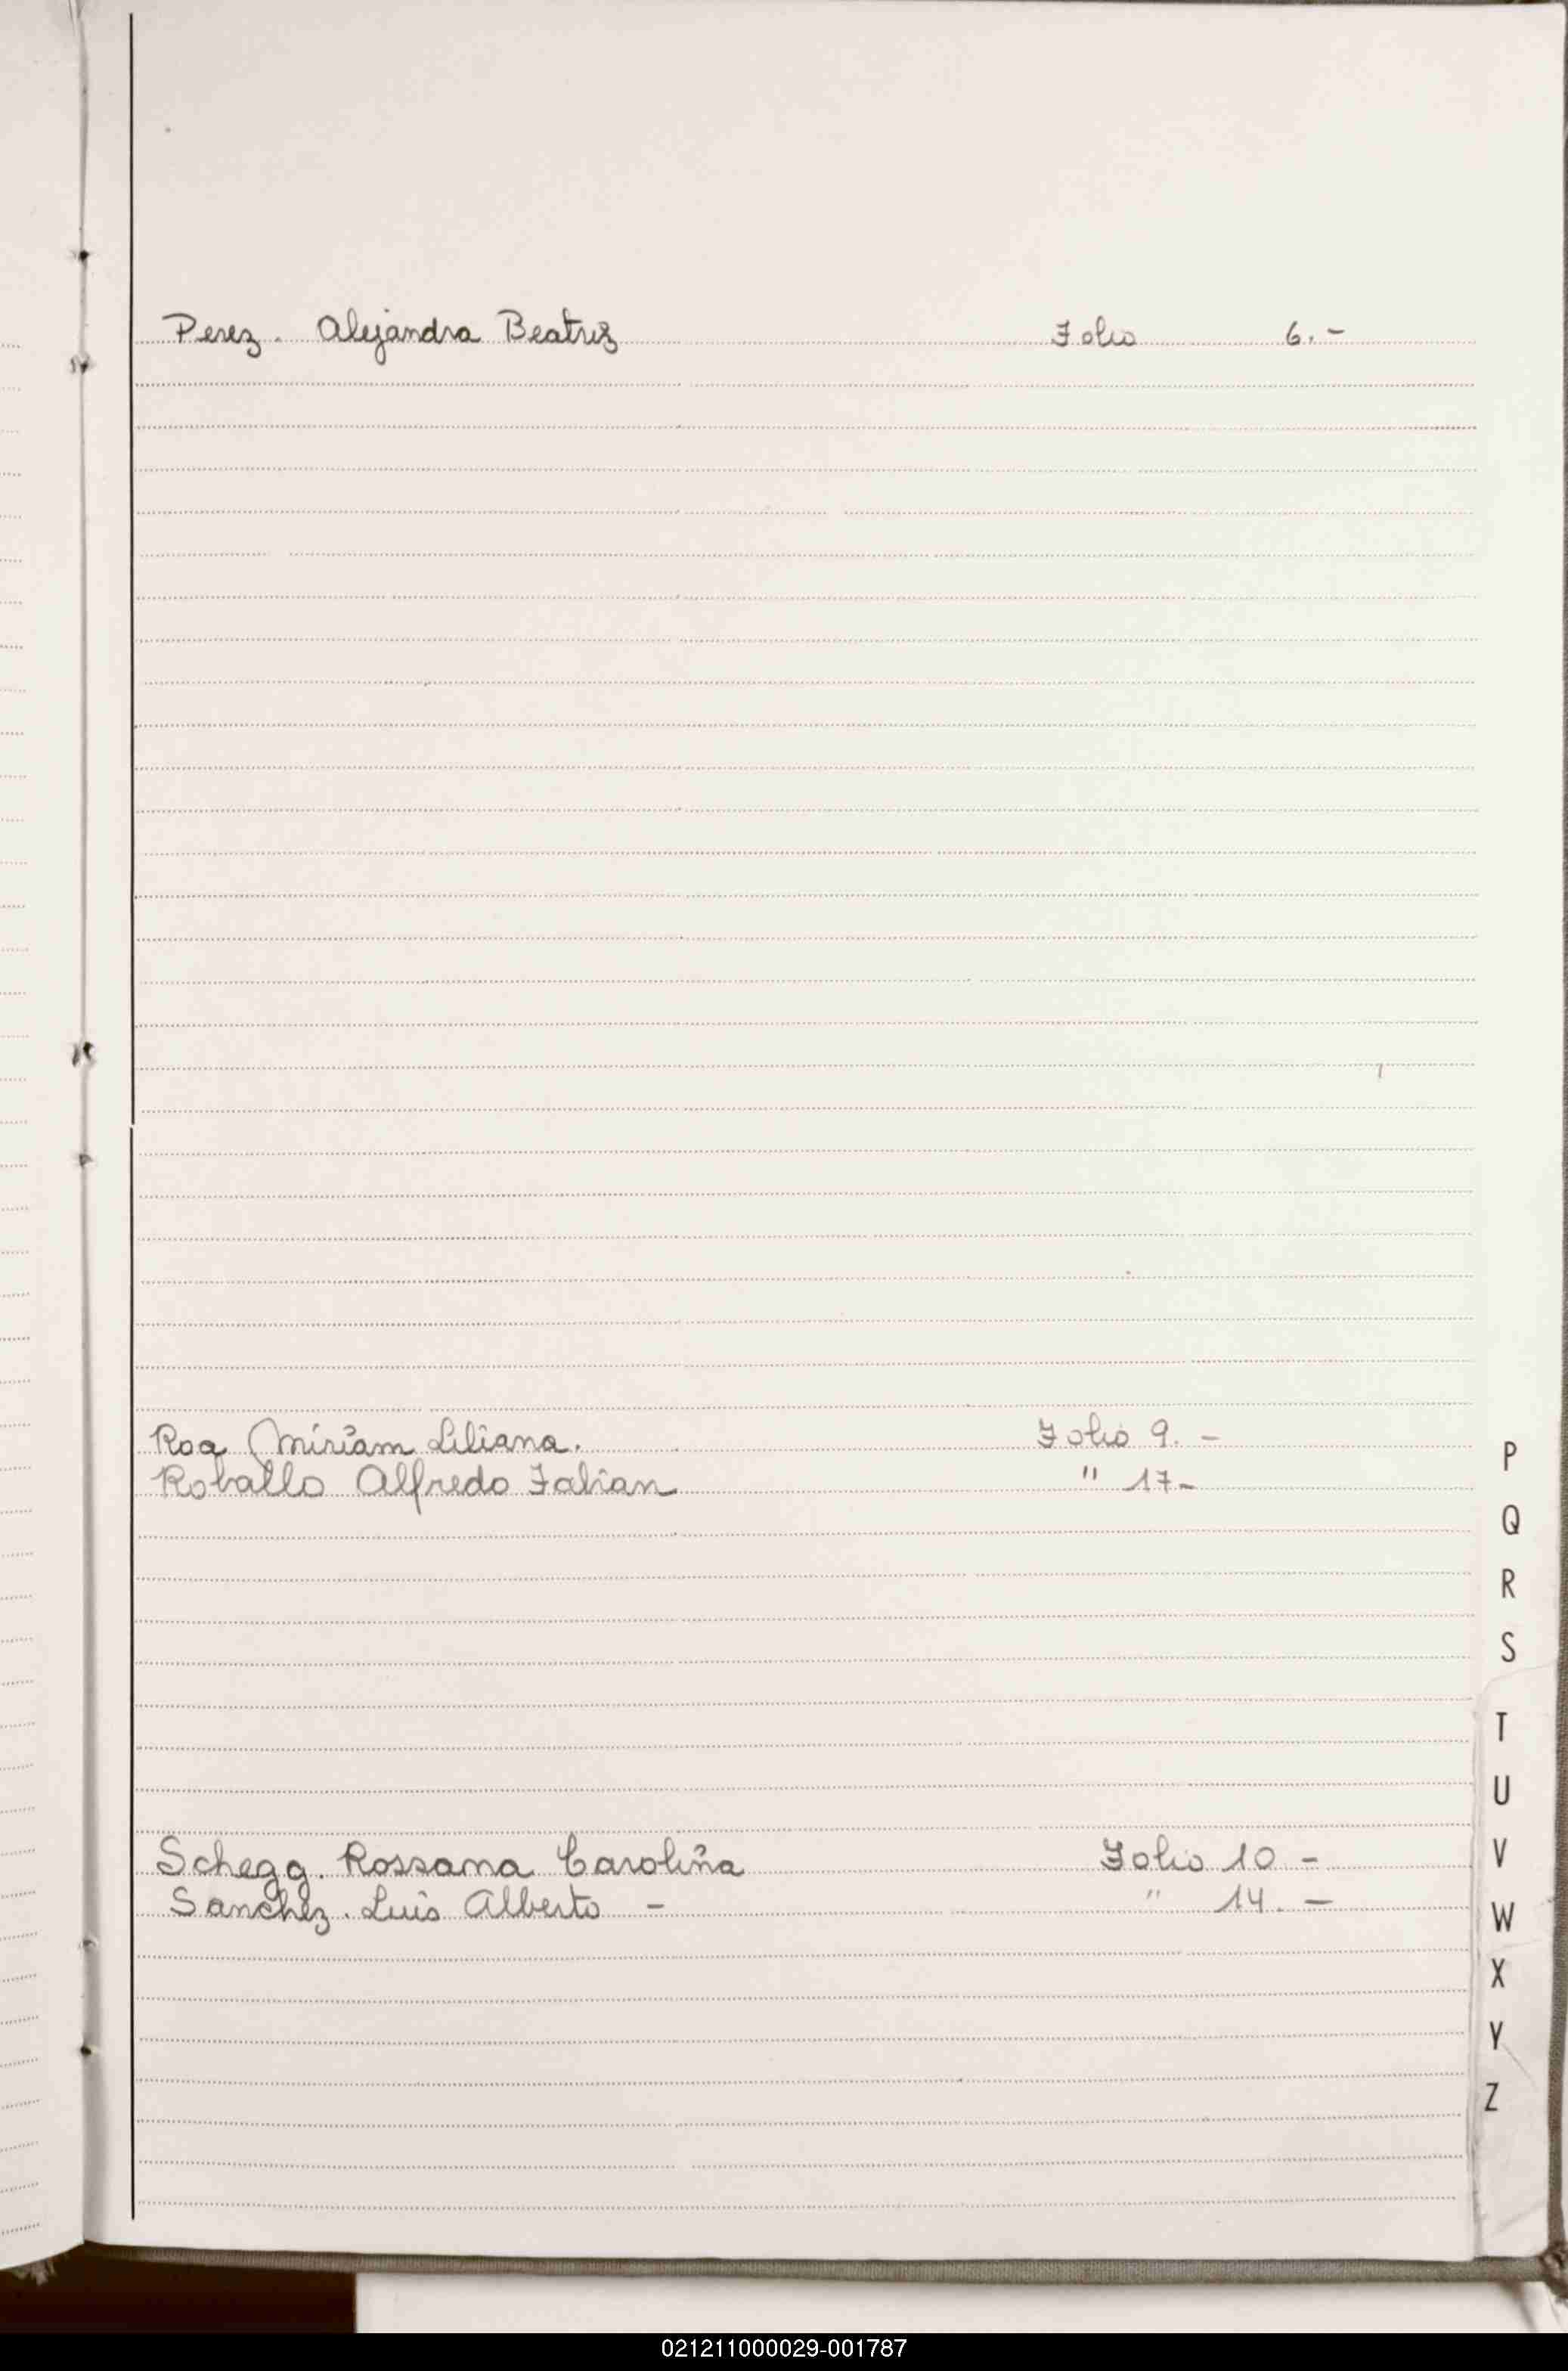 Perez. Alejandra Beatriz Folio 6.-
Roa Miriam Liliana. Folio 9.-
Roballo Alfredo Fabian " 17-
Schegg. Rossana Carolina Folio 10 -
Sanchez. Luis Alberto - " 14.-
P
Q
R
S
T
U
V
W
X
Y
Z
021211000029-001787